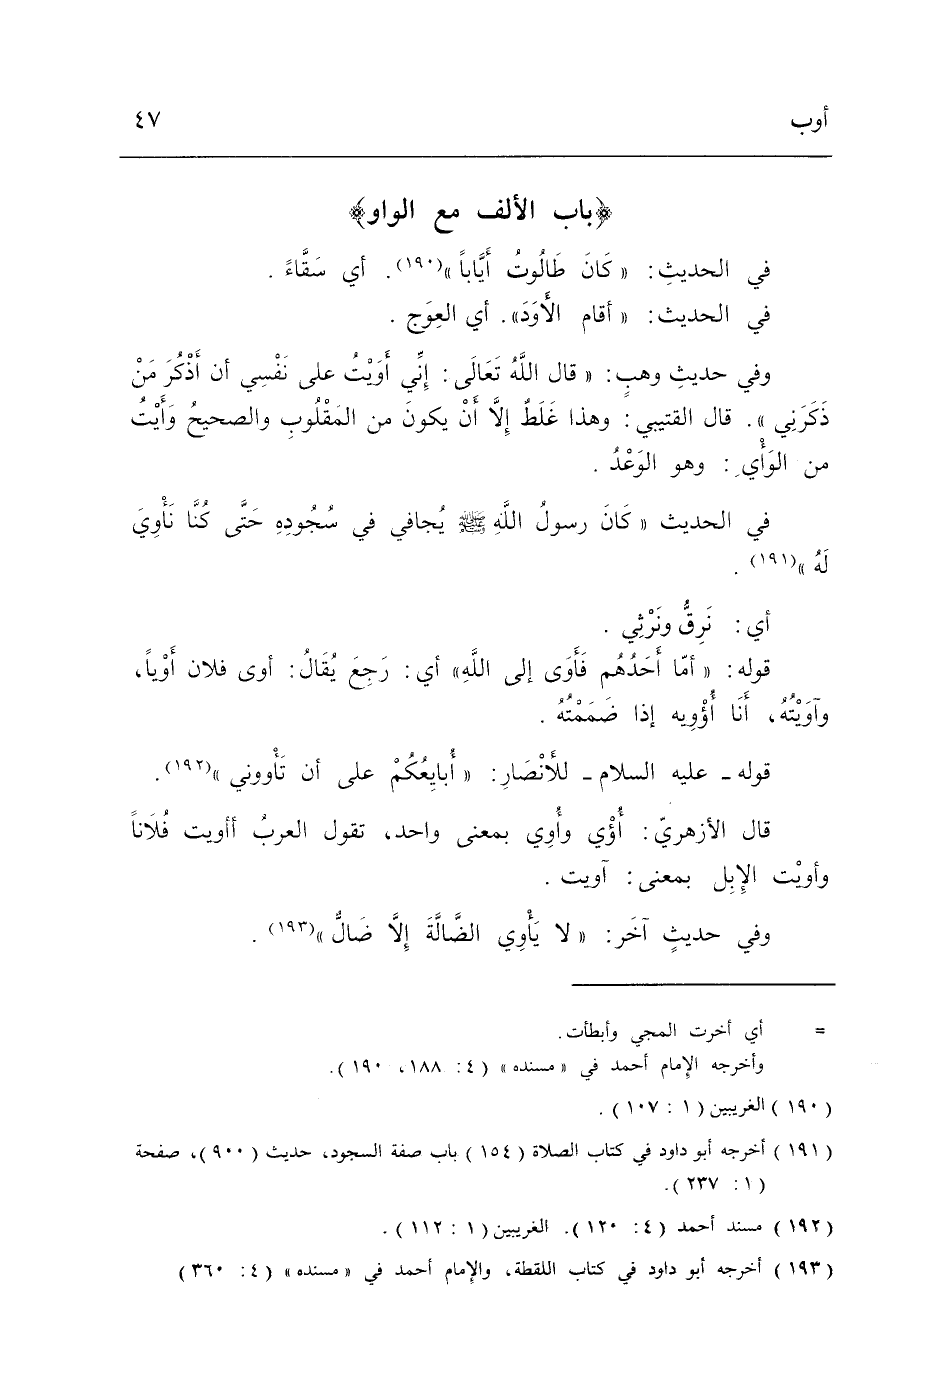 أوب ٤٧
﴿باب الألف مع الواو﴾
في الحديثِ: « كَانَ طَالُوتُ أَيَّاباً »(١٩٠). أي سَقَّاءً .
في الحديث: « أقام الأَوَدَ». أي العِوَج .
وفي حديثِ وهبٍ: « قال اللَّهُ تَعَالَى: إنِّي أَوَيْتُ على نَفْسِي أن أَذْكُرَ مَنْ
ذَكَرَنِي ». قال القتيبي: وهذا غَلَطٌ إلَّا أَنْ يكونَ من المَقْلُوبِ والصحيحُ وَأَيْتُ
من الوَأْيِ: وهو الوَعْدُ .
في الحديث « كَانَ رسولُ اللَّهِ ﷺ يُجافي في سُجُودِهِ حَتَّى كُنَّا نَأْوِيَ
لَهُ »(١٩١) .
أي: نَرِقُّ ونَرْثِي .
قوله: « أمّا أَحَدُهُم فَأَوَى إلى اللَّهِ» أي: رَجِعَ يُقَالُ: أوى فلان أَوْياً،
وآوَيْتُهُ، أَنَا أُؤْوِيه إذا ضَمَمْتُهُ .
قوله ـ عليه السلام ـ للأَنْصَارِ: « أُبايِعُكُمْ على أن تَأْووني »(١٩٢).
قال الأزهريّ: أُؤْي وأُوِي بمعنى واحد، تقول العربُ أأويت فُلَاناً
وأويْت الإِبِل بمعنى: آويت .
وفي حديثٍ آخَر: « لا يَأْوِي الضَّالَّةَ إلَّا ضَالٌّ »(١٩٣) .
= أي أخرت المجي وأبطأت.
وأخرجه الإمام أحمد في « مسنده » ( ٤: ١٨٨، ١٩٠ ).
( ١٩٠ ) الغريبين ( ١ : ١٠٧ ) .
( ١٩١ ) أخرجه أبو داود في كتاب الصلاة ( ١٥٤ ) باب صفة السجود، حديث ( ٩٠٠ )، صفحة
( ١ : ٢٣٧ ).
( ١٩٢ ) مسند أحمد ( ٤: ١٢٠ ). الغريبين ( ١ : ١١٢ ) .
( ١٩٣ ) أخرجه أبو داود في كتاب اللقطة، والإمام أحمد في « مسنده » ( ٤: ٣٦٠ )